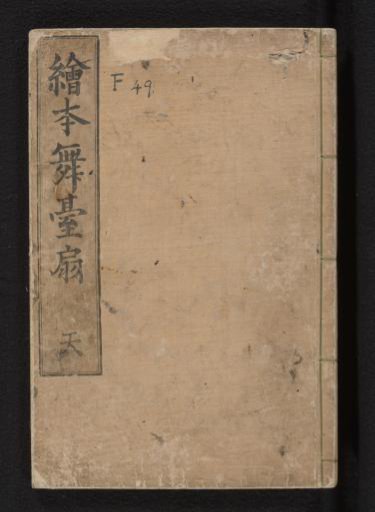 繪本舞臺扇 天
F 49